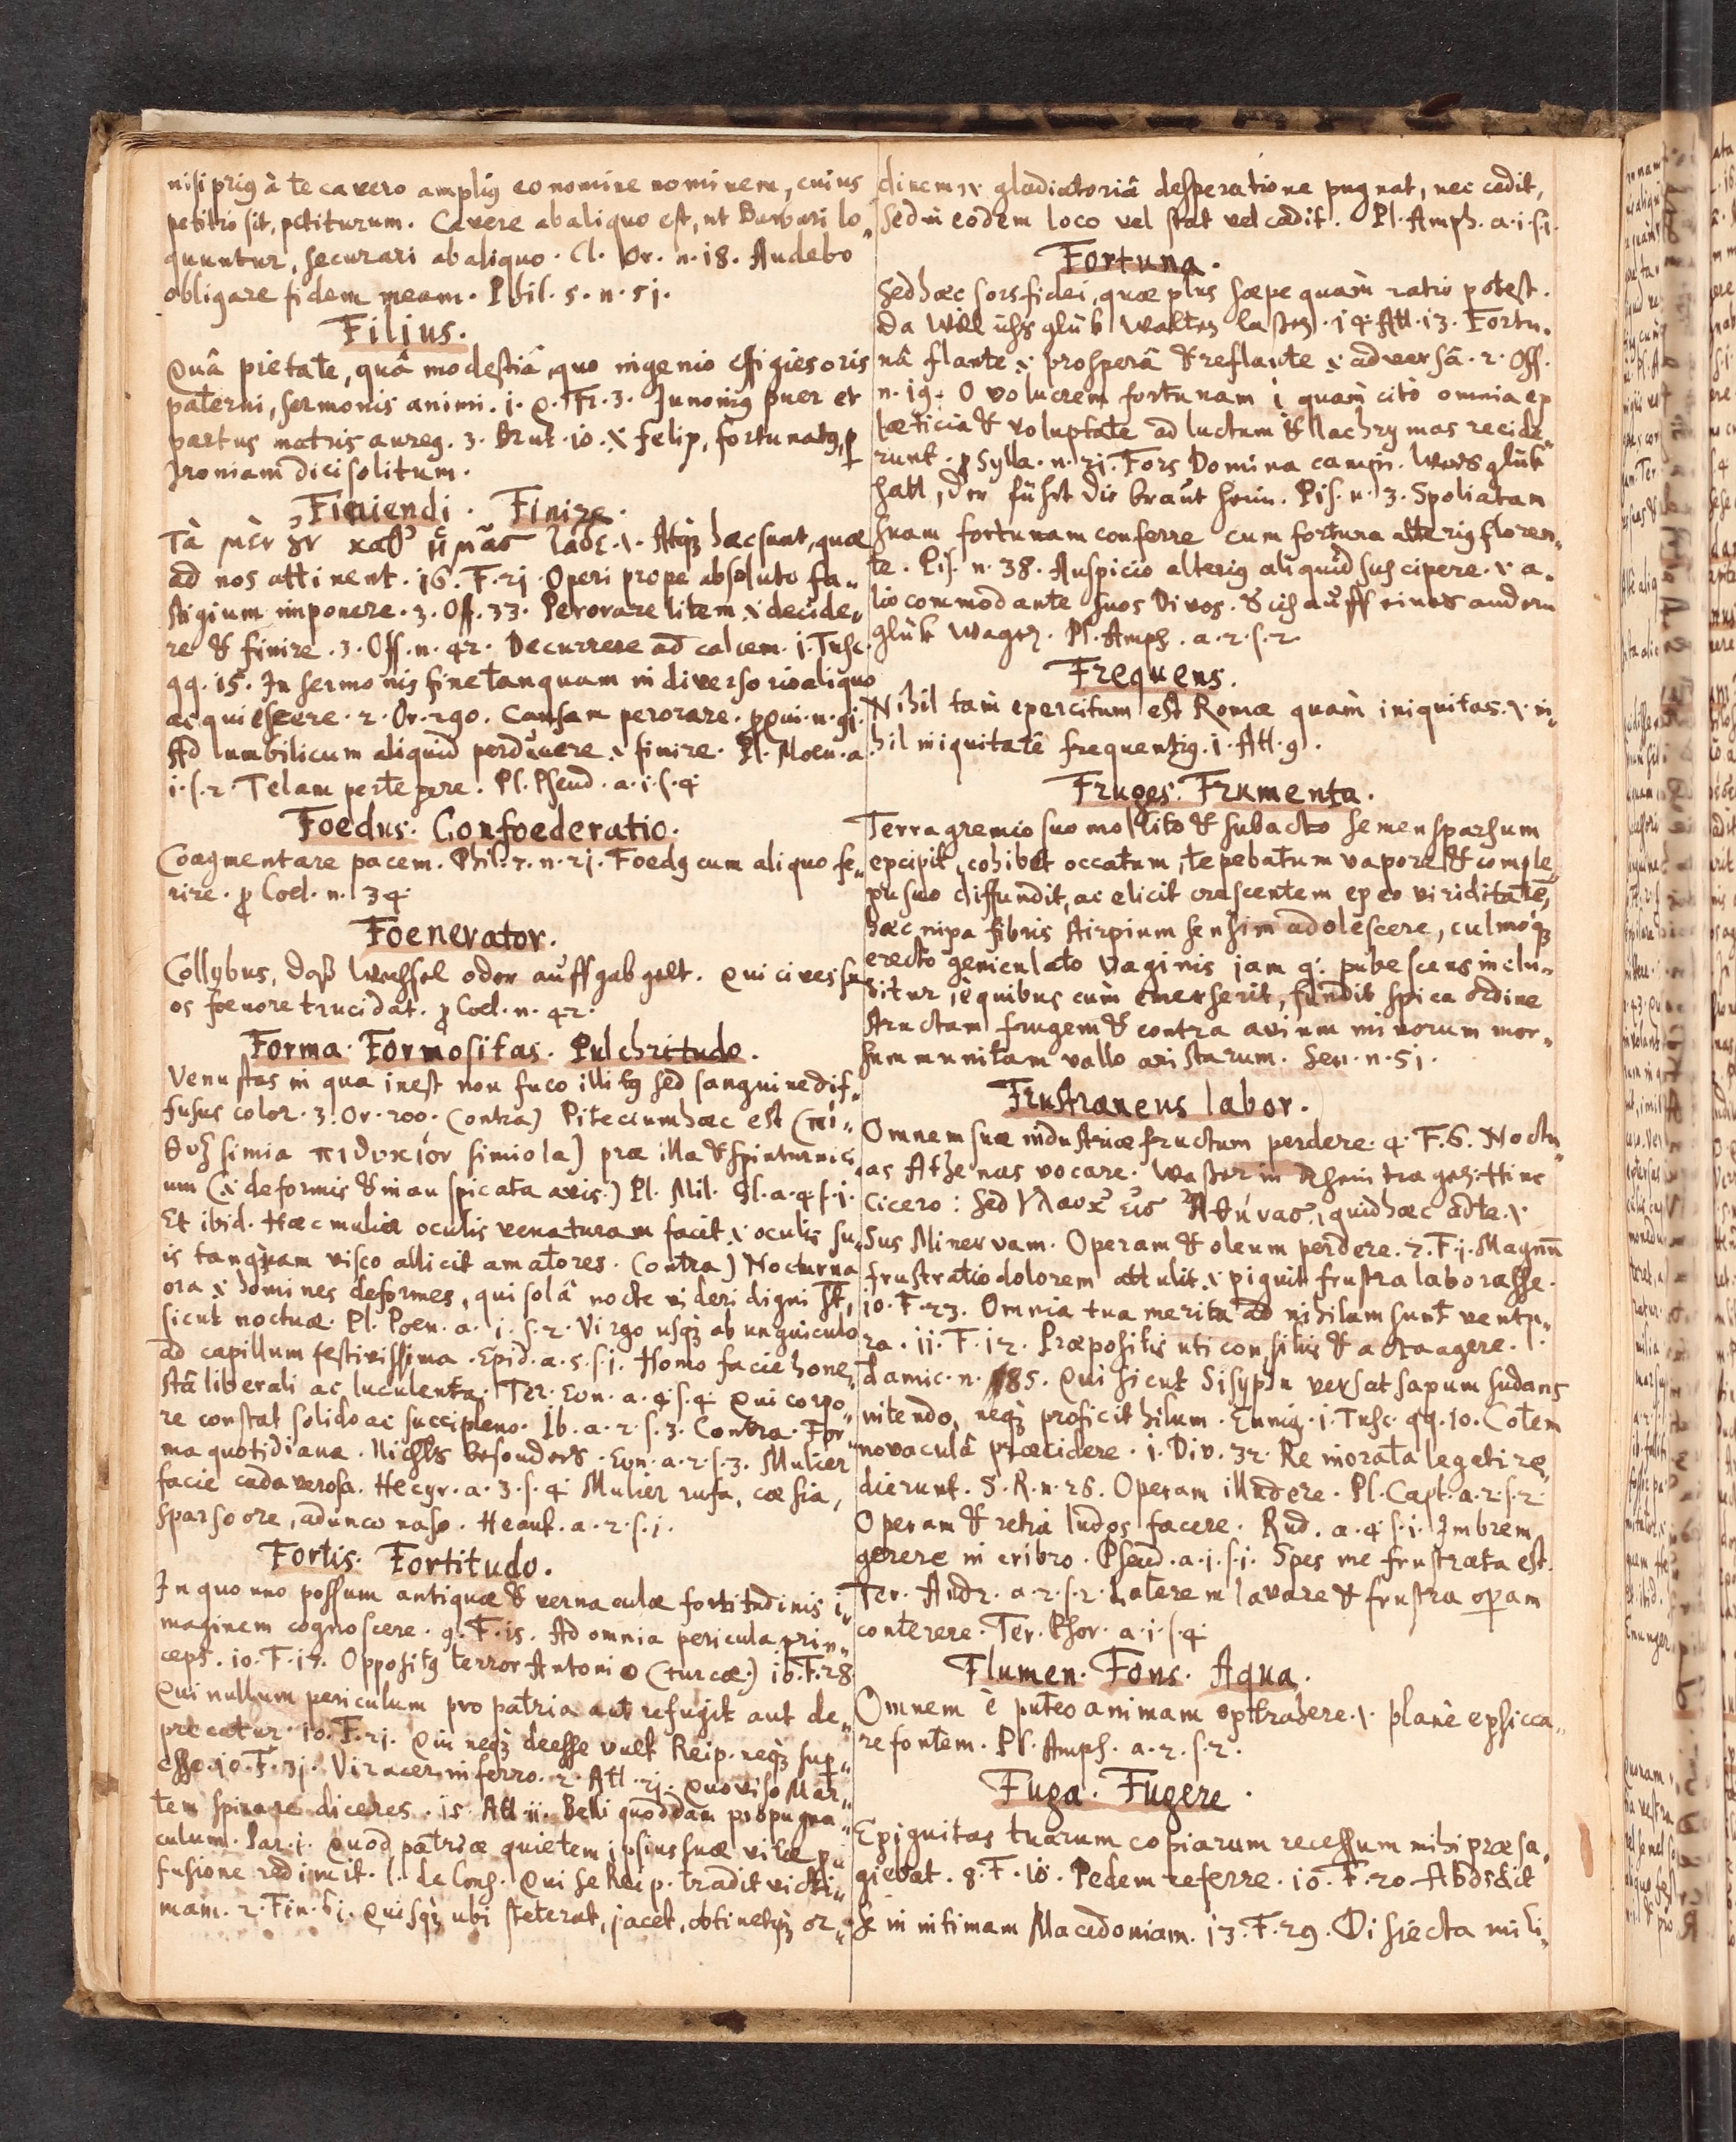 nisi prius à te cavero amplius eo nomine neminem, cuius
petitio sit, petiturum. Cavere ab aliquo est, ut Barbari lo„
quuntur, securari ab aliquo. Cl. Or. n. 18. Audebo
obligare fidem meam. Phil. 5. n. 51.
Filius.
Quâ pietate, quâ modestiâ, quo ingenio effigies oris
paterni, sermonis animi. 1. Q. Fr. 3. Junonius puer et
partus matris aureus. 3. Brut. 10. felix, fortunatus, p
Ironiam dici solitum.
Finiendi. Finire.
Τὰ μὲν ȣν καθ' ἡμᾶς τάδε. Atqz hæc sunt, quæ
ad nos attinent. 16. F. 21. Operi prope absoluto fa„
stigium imponere. 3. Off. 33. Perorare litem decide„
re & finire. 3. Off. n. 42. Decurrere ad calcem. 1. Tusc.
qq. 15. In sermonis fine tanquam in diversorio aliquo
acquiescere. 2. Or. 290. Causam perorare. p Qui. n. 91.
Ad umbilicum aliquid perducere finire. Pl. Moen. a.
1. s. 2. Telam pertexere. Pl. Pseud. a. 1. s. 4.
Foedus. Confoederatio.
Coagmentare pacem. Phil. 7. n. 21. Foedus cum aliquo fe„
rire. p Coel. n. 34.
Foenerator.
Collybus, daß Wechsel oder auffgab gelt. Qui cives su„
os foenore trucidat. p Coel. n. 42.
Forma. Formositas. Pulchritudo.
Venustas in qua inest non fuco illitus sed sanguine dif„
fusus color. 3. Or. 200. Contra) Pitecium hæc est (πί„
θηξ simia πιθηκίον simiola) præ illa & spinturnici„
um ( deformis & inauspicata avis.) Pl. Mil. Gl. a. 4. s. 1.
Et ibid. Hæc mulier oculis venaturam facit oculis su„
is tanquam visco allicit amatores. Contra) Nocturna
ora homines deformes, qui solâ nocte videri digni st,
sicut noctuæ. Pl. Poen. a. 1. s. 2. Virgo usqz ab unguiculo
ad capillum festivissima. Epid. a. 5. s. 1. Homo facie hone„
stâ liberali ac luculenta. Ter. Eun. a. 4. s. 4. Qui corpo„
re constat solido ac succipleno. Ib. a. 2. s. 3. Contra. For„
ma quotidiana. Nichts besonders. Eun. a. 2. s. 3. Mulier
facie cadaverosa. Hecyr. a. 3. s. 4. Mulier rufa, cæsia,
sparso ore, adunco naso. Heaut. a. 2. s. 1.
Fortis. Fortitudo.
In quo uno possum antiquæ & vernaculæ fortitudinis i„
maginem cognoscere. 9. F. 15. Ad omnia pericula prin„
ceps. 10. F. 17. Oppositus terror Antonio (turcæ.) 10. F. 28.
Qui nullum periculum pro patria aut refugit aut de„
precatur. 10. F. 21. Qui neqz deesse vult Reip. neqz sup„
esse. 10. F. 31. Vir acer in ferro. 2. Att. 21. Quo viso Mar„
tem spirare diceres. 15. Att. 11. Belli quoddam propugna„
culum. Par. 1. Quod patriæ quietem ipsius suæ vitæ p„
fusione redimit. l. de Cons. Qui se Reip. tradit victi„
mam. 2. Fin. 61. Quisqz ubi steterat, jacet, obtinetqz or„
dinem gladiatoriâ desperatione pugnat, nec cedit,
sed in eodem loco vel stat vel cadit. Pl. Amph. a. 1. s. 1.
Fortuna.
Sed hæc sors fidei, quæ plus sæpe quàm ratio potest.
Da will ichs glück walten lasten. 14. Att. 13. Fortu„
nâ flante prosperâ & reflante adversâ. 2. Off.
n. 19. O volucrem fortunam! quàm citò omnia ex
lætitia & voluptate ad luctum & lachrymas recide„
runt. p Sylla. n. 21. Fors Domina campi. Wers glük
hatt, der führt die braut heim. Pis. n. 3. Spoliatam
suam fortunam conferre cum fortuna alterius floren„
te. Pis. n. 38. Auspicio alterius aliquid suscipere. a„
lio commodante suos Divos. & ich auff eines andern
glük wagen. Pl. Amph. a. 2. s. 2.
Frequens.
Nihil tàm exercitum est Romæ quàm iniquitas. ni„
hil iniquitate frequentius. 1. Att. 9.
Fruges. Frumenta.
Terra gremio suo mollito & subacto semen sparsum
excipit, cohibet occatum, tepebatum vapore & comple„
xu suo diffundit, ac elicit crescentem ex eo viriditatē,
hæc nixa fibris stirpium sensim adolescere, culmoqz
erecto geniculato vaginis jam q. pubescens inclu„
ditur, è quibus cùm emerserit, fundit spica ordine
structam frugem & contra avium minorum mor„
sum munitam vallo aristarum. Sen. n. 51.
Frustraneus labor.
Omnem suæ industriæ fructum perdere. 4. F. 6. Noctu„
as Athenas vocare. Wasser in Rhein tragen. Hinc
Cicero: Sed γλαῦκ' εἰς Ἀθήνας, quid hæc ad te.
Sus Minervam. Operam & oleum perdere. 7. F. 1. Magnū
frustratio dolorem attulit. piguit frustra laborasse.
10. F. 23. Omnia tua merita ad nihilum sunt ventu„
ra. 11. F. 12. Præpositis uti consiliis & acta agere. l.
d amic. n. 85. Qui sicut Sisyphu versat saxum sudans
nitendo, neqz proficit hilum. Ennius. 1. Tusc. qq. 10. Cotem
novaculâ præcidere. 1. Div. 32. Re inorata legati re„
dierunt. S. R. n. 26. Operam illudere. Pl. Capt. a. 2. s. 2.
Operam & retia ludos facere. Rud. a. 4. s. 1. Imbrem
gerere in cribro. Pseud. a. 1. s. 1. Spes me frustrata est.
Ter. Andr. a. 2. s. 2. Laterem lavare & frustra opam
conterere. Ter. Phor. a. 1. s. 4.
Flumen. Fons. Aqua.
Omnem è puteo animam exttrahere. planè exsicca„
re fontem. Pl. Amph. a. 2. s. 2.
Fuga. Fugere.
Exiguitas tuarum copiarum recessum mihi præsa„
giebat. 8. F. 10. Pedem referre. 10. F. 20. Abdidit
se in intimam Macedoniam. 13. F. 29. Disiecta mili„